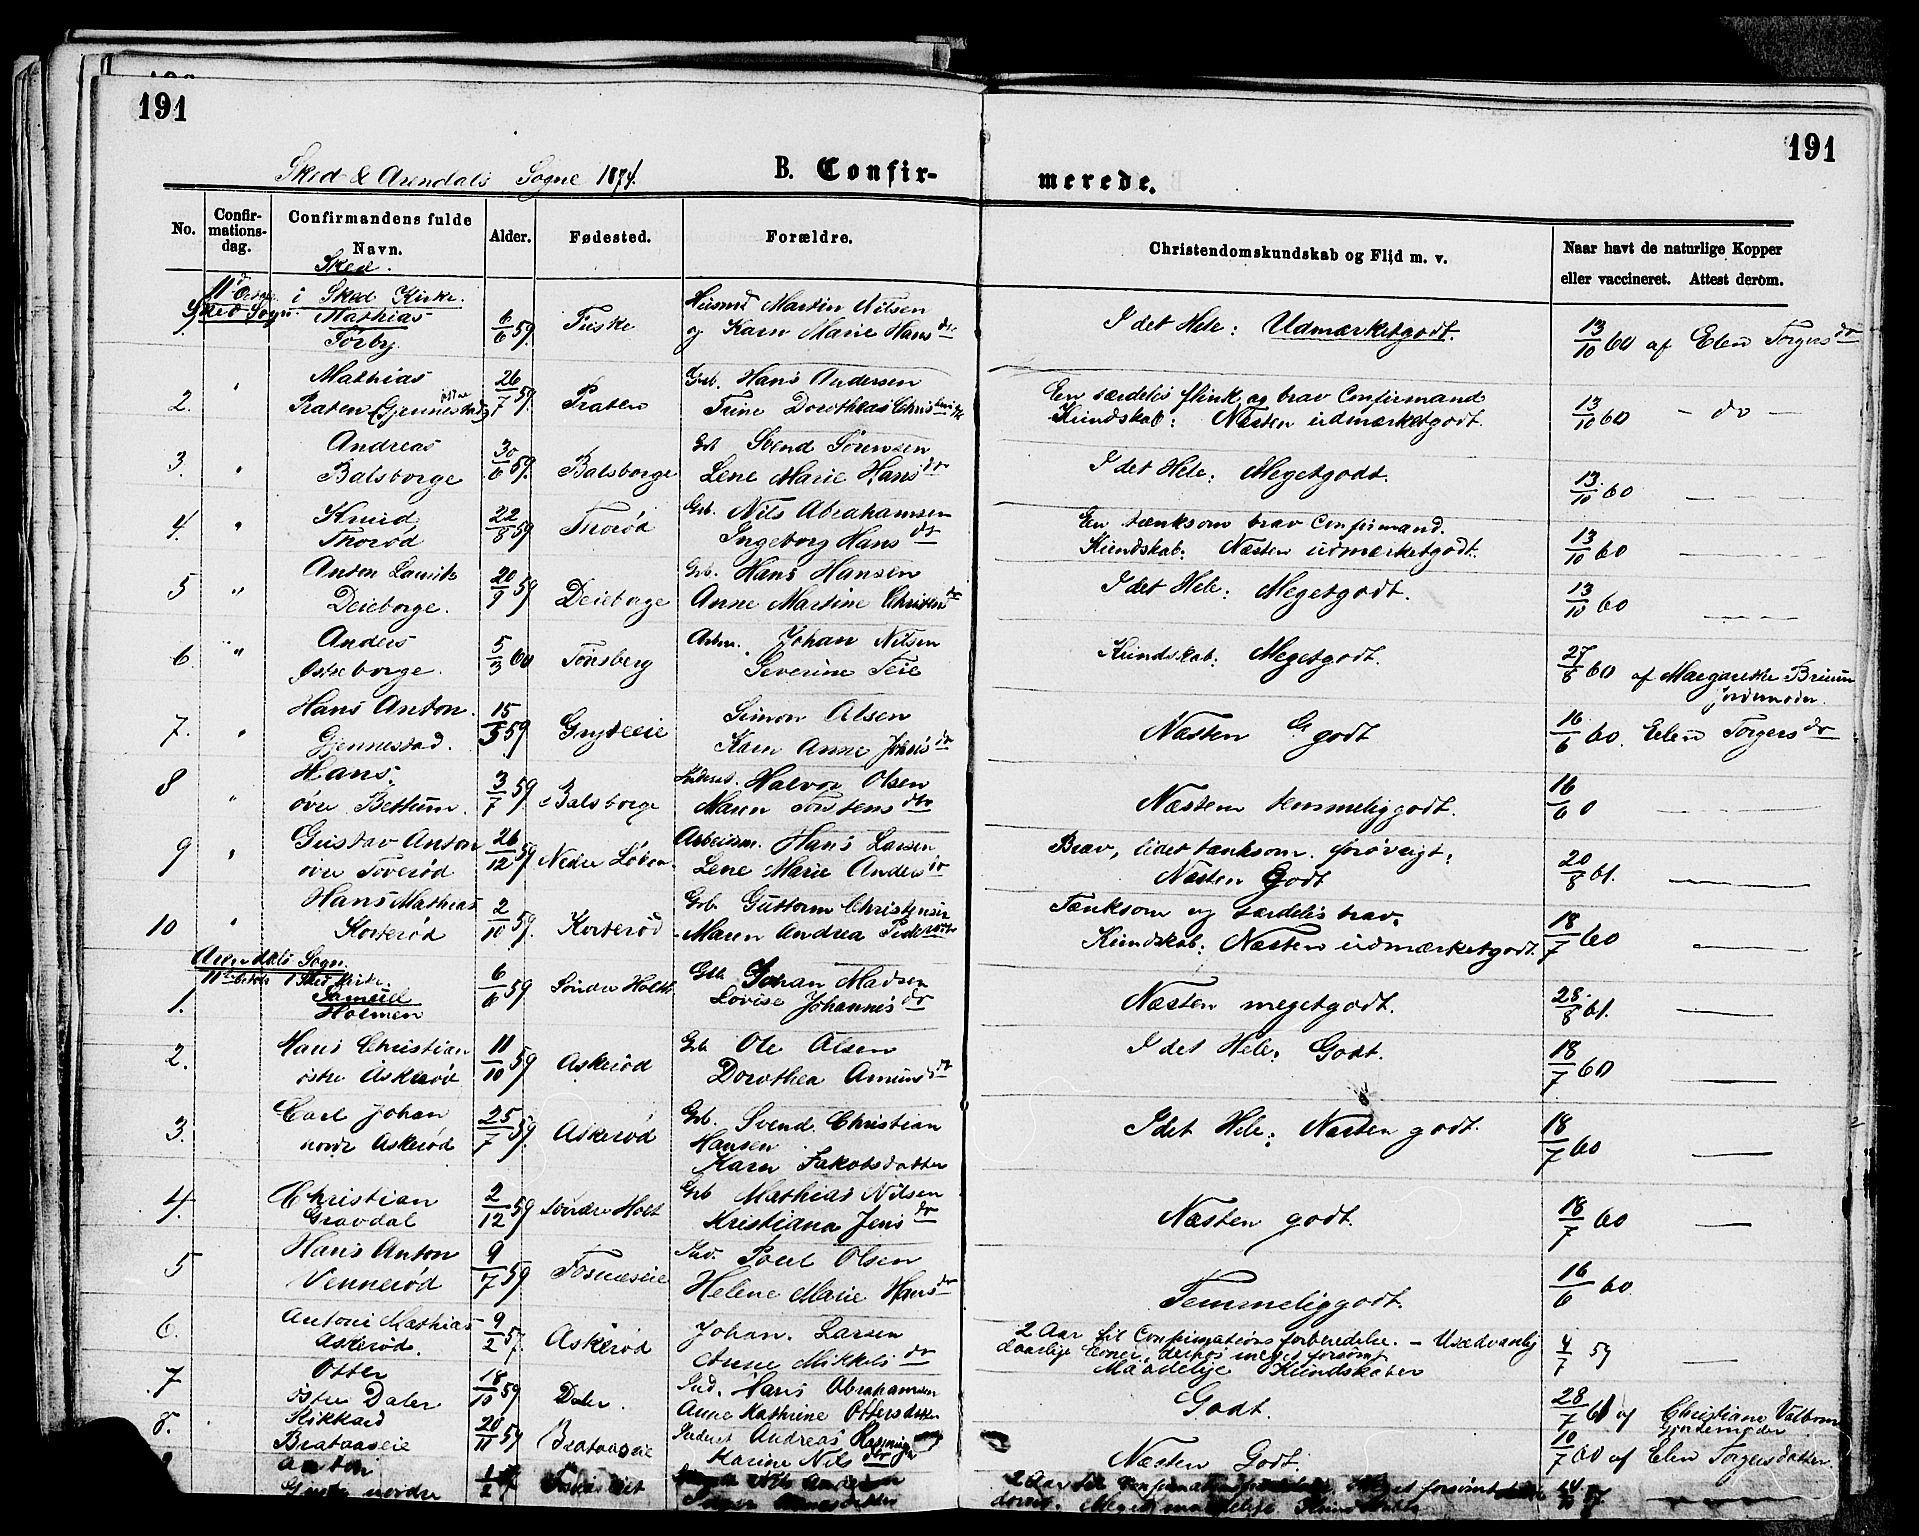 191
191
Sked & Arendals Sogne 1874.
B. Confir-
merede.
No.
Confir-
mations-
dag.
Confirmandens fulde
Navn.
Alder.
Fødested.
Forældre.
Christendomskundskab og Flid m. v.
Naar havt de naturlige Kopper
eller vaccineret. Attest derom.
Sked.
i Sked Kirke.
Sked Sogn.
1. Mathias Tørby 6/6 59. Fuske Husmd Martin Nilsen og Karn Marie Hansdtr I det Hele: Udmærketgodt. 13/10 60 af Elen Torgersdtr
2. " Mathias Præten (Gjennestad) 26/7 59. Præten Grb. Hans Andersen Trine Dorothea En særdeles flink og brav Confirmand Kundskab: Næsten udmærketgodt. 13/10 60 – do –
3. " Andreas Balsborge 30/6 59. Balsborge Grb Svend Sørensen Lene Marie Hansdtr I det Hele: Megetgodt. 13/10 60 —
4. " Knud Thorød 22/8 59 Thorød Grb. Nils Abrahamsen Ingeborg Hansdtr En tænksom brav Confirmand. Kundskab: Næsten udmærketgodt. 13/10 60 —
5 " Anton Laurits Deieborge. 20/9 59 Deieborge Grb. Hans Hansen Anne Martine I det Hele: Megetgodt. 13/10 60 —
6. " Anders Østreborge. 5/3 60 Tønsberg Arbm. Johan Nilsen Severine Teie Kundskab: Megetgodt. 27/8 60 af Margarethe Bruun Jordemoder
7. " Hans Anton Gjennestad. 15/5 59 Gryteeie Simon Olsen Karn Anne Johnsdtr Næsten Godt 16/6 60. Elen Torgersdtr
8 " Hans øvre Bettum. 3/7 59 Balsborge Halvor Olsen Maren Torstensdtr Næsten temmeliggodt. 16/6 60 —
9 " Gustav Anton øvre Toverød 26/12 59 Nedre Løken Arbeidsm. Hans Larsen Lene Marie Andersdtr Brav, lidet tænksom. forøvrigt: Næsten Godt 20/8 61. —
10 " Hans Mathias Korterød 2/10 59. Korterød Grb. Guttorm Christensen Maren Andrea Pedersdtr Tænksom og særdeles brav, Kundskab: Næsten udmærketgodt. 18/7 60 —
Arendals Sogn.
i Sked Kirke.
1. Samuel Holmen 6/6 59 Søndre Holt Grb. Johan Madsen Lovise Johannesdtr Næsten megetgodt. 28/8 61. —
2. Hans Christian østre Askerød 11/10 59 Askerød Grb Ole Olsen Dorothea Amundsdtr I det Hele: Godt. 18/7 60 —
3. Carl Johan nordre Askerød 25/7 59. Askerød Grb. Svend Christian Hansen Karn Jakobsdatter I det Hele: Næsten godt. 18/7 60 —
4. Christian Gravdal 2/12 59 Søndre Holt Grb Mathias Nilsen Kristiana Jensdtr Næsten godt. 18/7 60 —
5 Hans Anton Vennerød 9/7 59 Fosnæseie Ind. Poul Olsen Helene Marie Hansdtr Temmeliggodt. 16/6 60
6. Antoni Mathias Askerød. 9/2 57. Askerød Johan Larsen Anne Mikkelsdtr 2 Aar til Confirmationsforberedelse. – Usædvanlig daarlige Evner, derhos meget forsømt Maadelige Kundskaber 4/7 59 —
7 Otter østre Daler 18/10 59 Daler. Ind. Hans Abrahamsen Anne Kathrine Ottersdatter Godt. 28/7 61 af Christiane Valborn Jordemoder
8. Rikkard Brataaseie 20/11 59 Brataaseie Inderst Andreas Karine Nilsdtr Næsten Godt. 10/7 60 af Elen Torgersdatter.
Anton nordre 2 Aar til meget forsømt